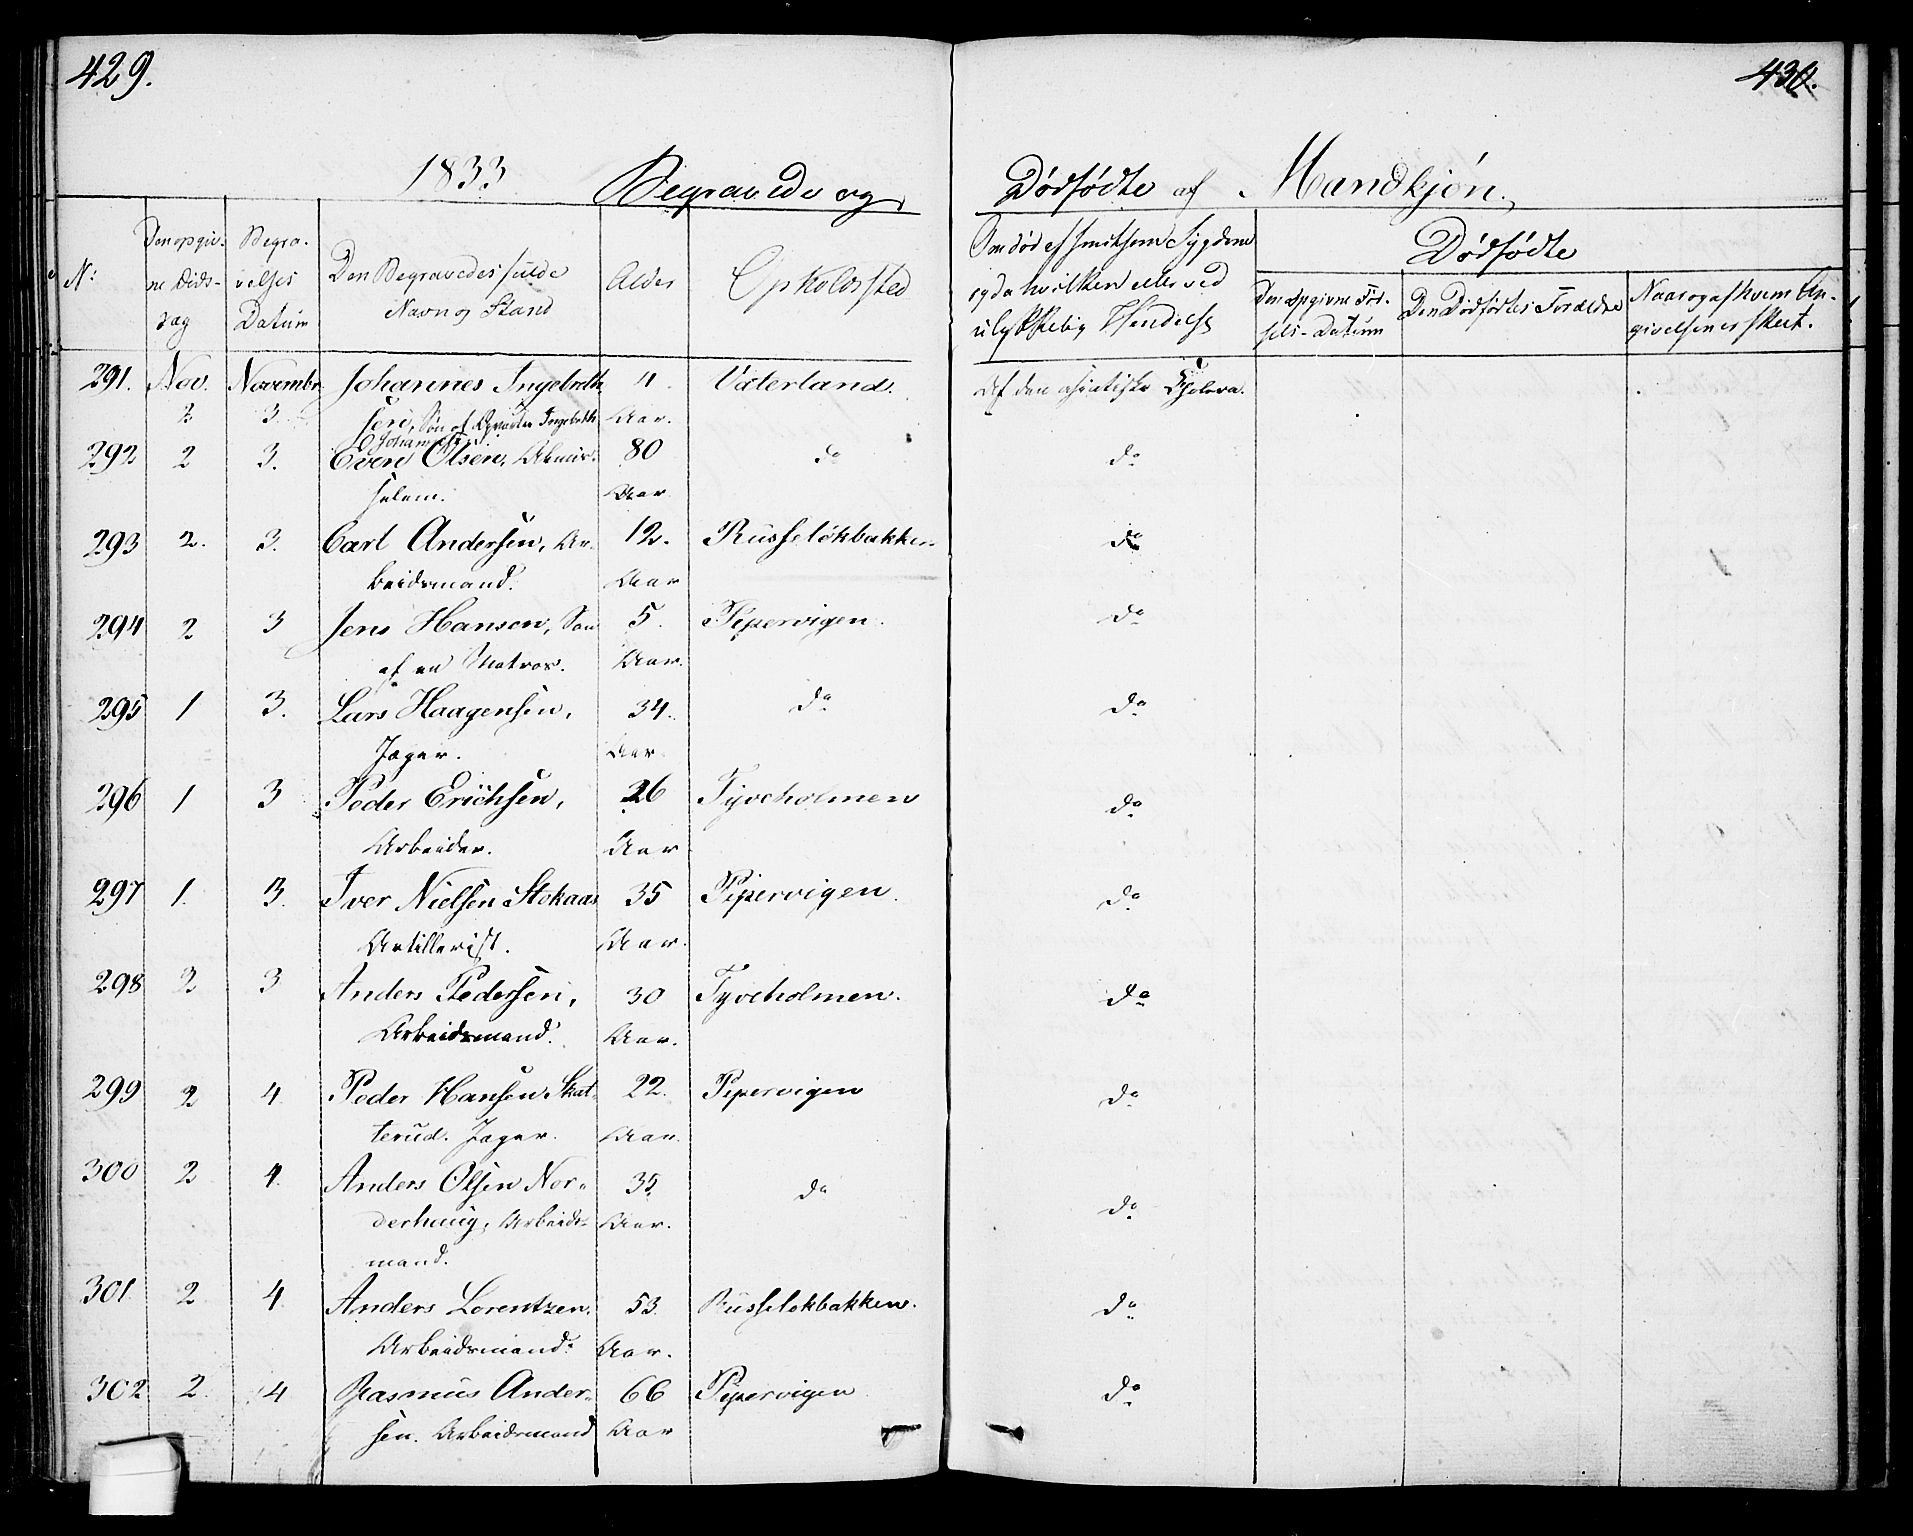 429.
430.
1833 Begravede og Dødfødte af Mandkjön.
No: Den opgiv- Begra- Den Begravedes fulde Alder Opholdssted Om død af smitsom Sygdom Dødfødte
ne Døds- velses Navn og Stand og da hvilken eller ved Den opgivne Fød- Den Dødfødtes Forældre Naar og af hvem An-
dag Datum ulykkelig Hændelse sels-Datum givelsen er skeet.
291. Nov. Novembr. Johannes Ingebreth- 4 Vaterland. Af den asiatiske Cholera.
2 3. sen, Søn af Ingebreth Aar.
Johannesen.
292 2 3. Even Olsen, Almis- 80 do do
selem. Aar.
293 2. 3. Carl Andersen, Ar- 12. Russeløkbakken do
beidsmand. Aar
294 2 3 Jens Hansen, Søn 5. Pipervigen. do
af en Matros. Aar.
295 1 3. Lars Haagensen, 34. do do
Jæger. Aar.
296 1 3 Peder Erichsen, 26 Tyveholmen do
Arbeider. Aar
297 1. 3. Iver Nielsen Stokaas 35 Pipervigen. do
Artillerist. Aar.
298 2 3 Anders Pedersen, 30 Tyveholmen. do
Arbeidsmand. Aar.
299 2 4. Peder Hansen Skat- 22. Pipervigen do
terud. Jæger. Aar.
300 2 4. Anders Olsen Nor- 35. do do
derhaug, Arbeids- Aar.
mand.
301 2 4. Anders Lorentzen, 53. Russeløkbakken. do
Arbeidsmand. Aar.
302 2. 4 Rasmus Ander- 66 Pipervigen do
sen. Arbeidsmand Aar